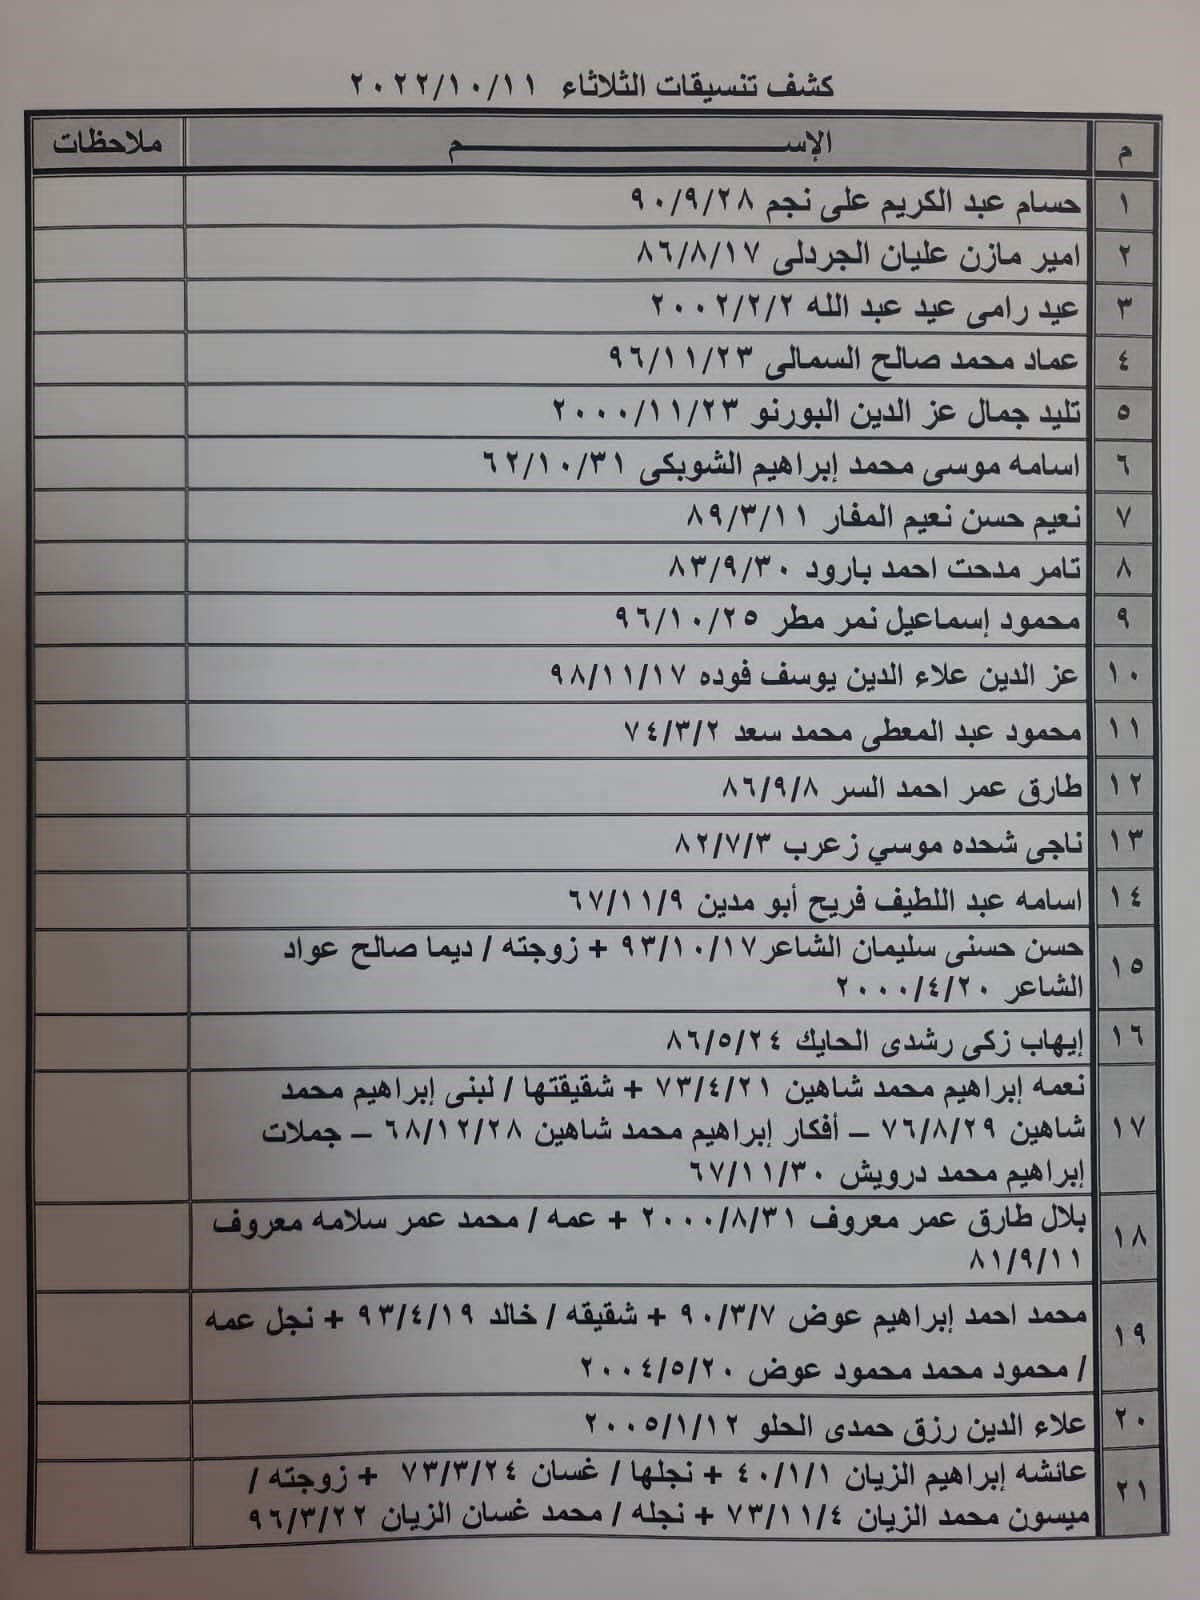 كشف تنسيقات الثلاثاء ٢٠٢٢/١٠/١١
م الإســـــــم ملاحظات
١ حسام عبد الكريم على نجم ٩٠/٩/٢٨
٢ امير مازن عليان الجردلى ٨٦/٨/١٧
٣ عيد رامى عيد عبد الله ٢٠٠٢/٢/٢
٤ عماد محمد صالح السمالى ٩٦/١١/٢٣
٥ تليد جمال عز الدين البورنو ٢٠٠٠/١١/٢٣
٦ اسامه موسى محمد إبراهيم الشوبكى ٦٢/١٠/٣١
٧ نعيم حسن نعيم المفار ٨٩/٣/١١
٨ تامر مدحت احمد بارود ٨٣/٩/٣٠
٩ محمود إسماعيل نمر مطر ٩٦/١٠/٢٥
١٠ عز الدين علاء الدين يوسف فوده ٩٨/١١/١٧
١١ محمود عبد المعطى محمد سعد ٧٤/٣/٢
١٢ طارق عمر احمد السر ٨٦/٩/٨
١٣ ناجى شحده موسي زعرب ٨٢/٧/٣
١٤ اسامه عبد اللطيف فريح أبو مدين ٦٧/١١/٩
١٥ حسن حسنى سليمان الشاعر٩٣/١٠/١٧ + زوجته / ديما صالح عواد
الشاعر ٢٠٠٠/٤/٢٠
١٦ إيهاب زكى رشدى الحايك ٨٦/٥/٢٤
١٧ نعمه إبراهيم محمد شاهين ٧٣/٤/٢١ + شقيقتها / لبنى إبراهيم محمد
شاهين ٧٦/٨/٢٩ – أفكار إبراهيم محمد شاهين ٦٨/١٢/٢٨ – جملات
إبراهيم محمد درويش ٦٧/١١/٣٠
١٨ بلال طارق عمر معروف ٢٠٠٠/٨/٣١ + عمه / محمد عمر سلامه معروف
٨١/٩/١١
١٩ محمد احمد إبراهيم عوض ٩٠/٣/٧ + شقيقه / خالد ٩٣/٤/١٩ + نجل عمه
/ محمود محمد محمود عوض ٢٠٠٤/٥/٢٠
٢٠ علاء الدين رزق حمدى الحلو ٢٠٠٥/١/١٢
٢١ عائشه إبراهيم الزيان ٤٠/١/١ + نجلها / غسان ٧٣/٣/٢٤ + زوجته /
ميسون محمد الزيان ٧٣/١١/٤ + نجله / محمد غسان الزيان ٩٦/٣/٢٢